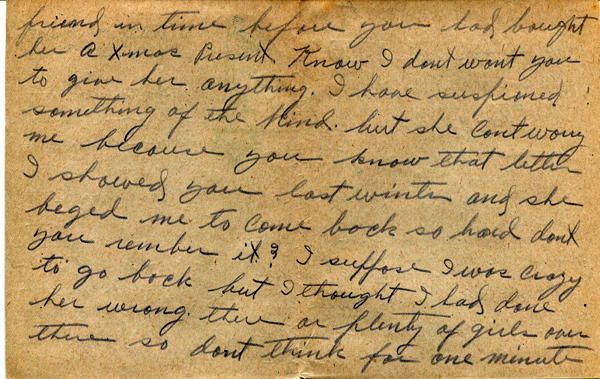 friend in time before you had bought
her a Xmas Present Know I dont want you
to give her anything. I have suspioned
something of the kind. but she cont wory
me because you know that letter
I showed you last winter and she
beged me to come back so hard dont
you rember it? I suffose I was crazy
to go back but I thought I had done
her wrong. there or plenty of girls over
there so dont think for one minute